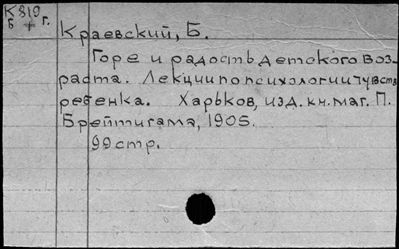 К 819
Б + г.
Краевский, Б.
Горе и радость детского воз-
раста. Лекции по психологии чувств
ребенка. Харьков, изд. кн. маг. П.
Брейтигама, 1905.
99 стр.